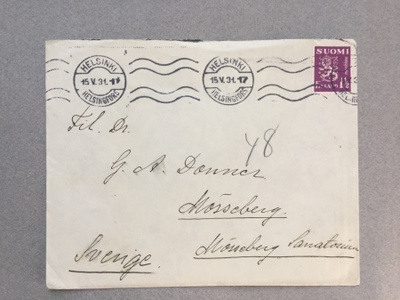 HELSINKI
15.V.31.-17
HELSINGFORS
HELSINKI
15.V.31.-17
HELSINGFORS
SUOMI
1½
Fil. Dr.
48
G. A. Donner
Mösseberg.
Sverige.
Mösseberg Sanatorium